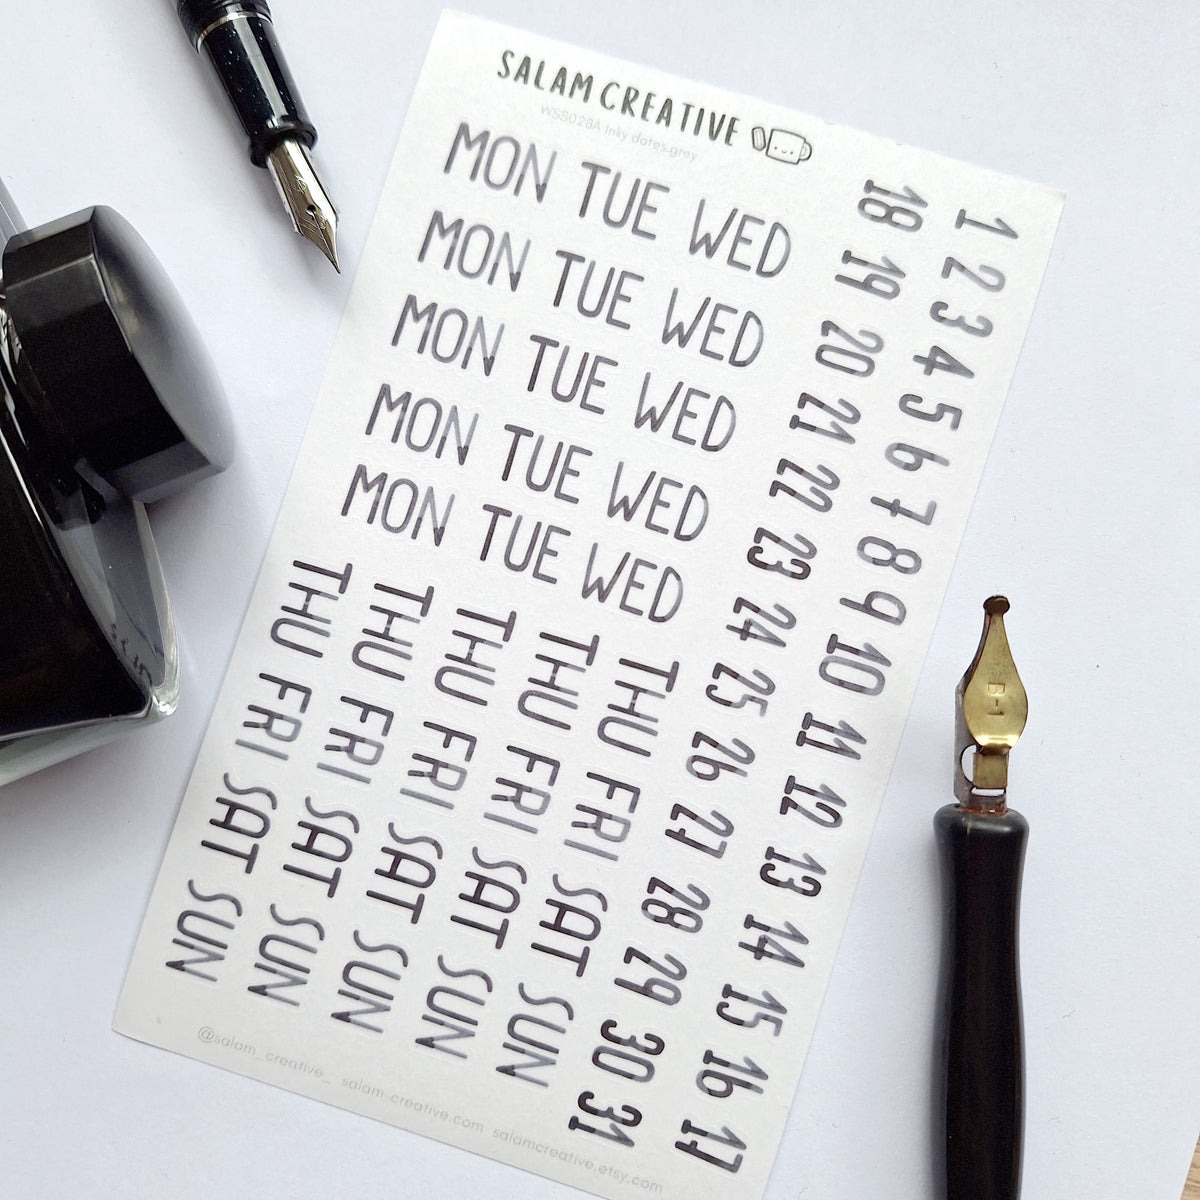 SALAM CREATIVE
WSS028A Inky dates.grey
MON TUE WED
MON TUE WED
MON TUE WED
MON TUE WED
MON TUE WED
THU FRI SAT SUN
THU FRI SAT SUN
THU FRI SAT SUN
THU FRI SAT SUN
THU FRI SAT SUN
1 2 3 4 5 6 7 8 9 10 11 12 13 14 15 16 17
18 19 20 21 22 23 24 25 26 27 28 29 30 31
@salam_creative_ salam-creative.com salamcreative.etsy.com
B-1